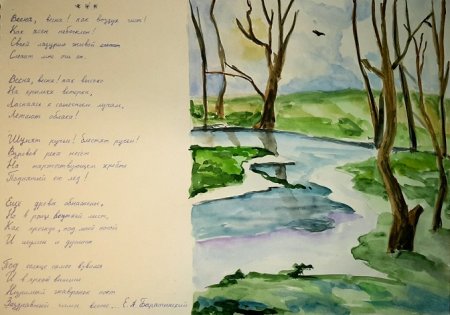 * * *
Весна, весна! как воздух чист!
Как ясен небосклон!
Своей лазурию живой
Слепит мне очи он.
Весна, весна! как высоко
На крыльях ветерка,
Ласкаясь к солнечным лучам,
Летают облака!
Шумят ручьи! блестят ручьи!
Взревев, река несет
На торжествующем хребте
Поднятый ею лед!
Ещё древа обнажены,
Но в роще ветхий лист,
Как прежде, под моей ногой
И шумен и душист.
Под солнце самое взвился
И в яркой вышине
Незримый жаворонок поёт
Заздравный гимн весне. Е. А. Баратынский